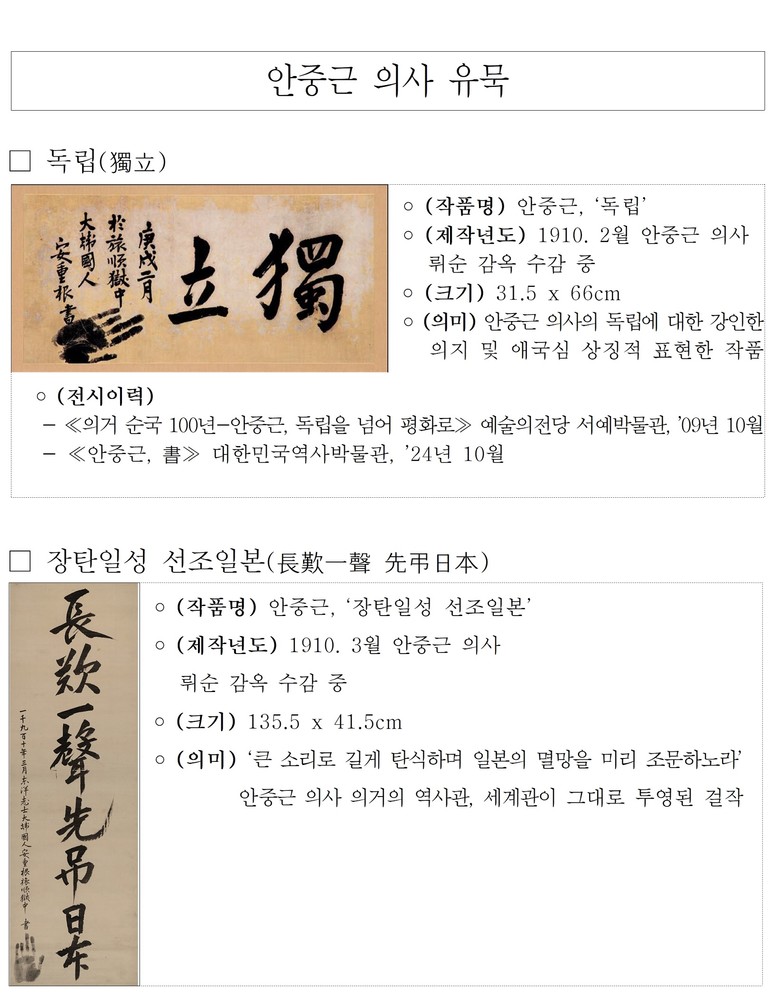 안중근 의사 유묵
□ 독립(獨立)
獨立
庚戌二月
於旅順獄中
大韓國人
安重根 書
○ (작품명) 안중근, ‘독립’
○ (제작년도) 1910. 2월 안중근 의사
뤼순 감옥 수감 중
○ (크기) 31.5 x 66cm
○ (의미) 안중근 의사의 독립에 대한 강인한
의지 및 애국심 상징적 표현한 작품
○ (전시이력)
- ≪의거 순국 100년-안중근, 독립을 넘어 평화로≫ 예술의전당 서예박물관, ’09년 10월
- ≪안중근, 書≫ 대한민국역사박물관, ’24년 10월
□ 장탄일성 선조일본(長歎一聲 先弔日本)
長歎一聲先吊日本
一千九百十年三月東洋志士大韓國人安重根旅順獄中 書
○ (작품명) 안중근, ‘장탄일성 선조일본’
○ (제작년도) 1910. 3월 안중근 의사
뤼순 감옥 수감 중
○ (크기) 135.5 x 41.5cm
○ (의미) ‘큰 소리로 길게 탄식하며 일본의 멸망을 미리 조문하노라’
안중근 의사 의거의 역사관, 세계관이 그대로 투영된 걸작